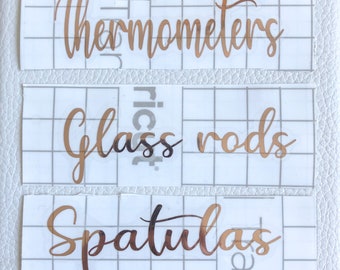 Thermometers
Glass rods
Spatulas